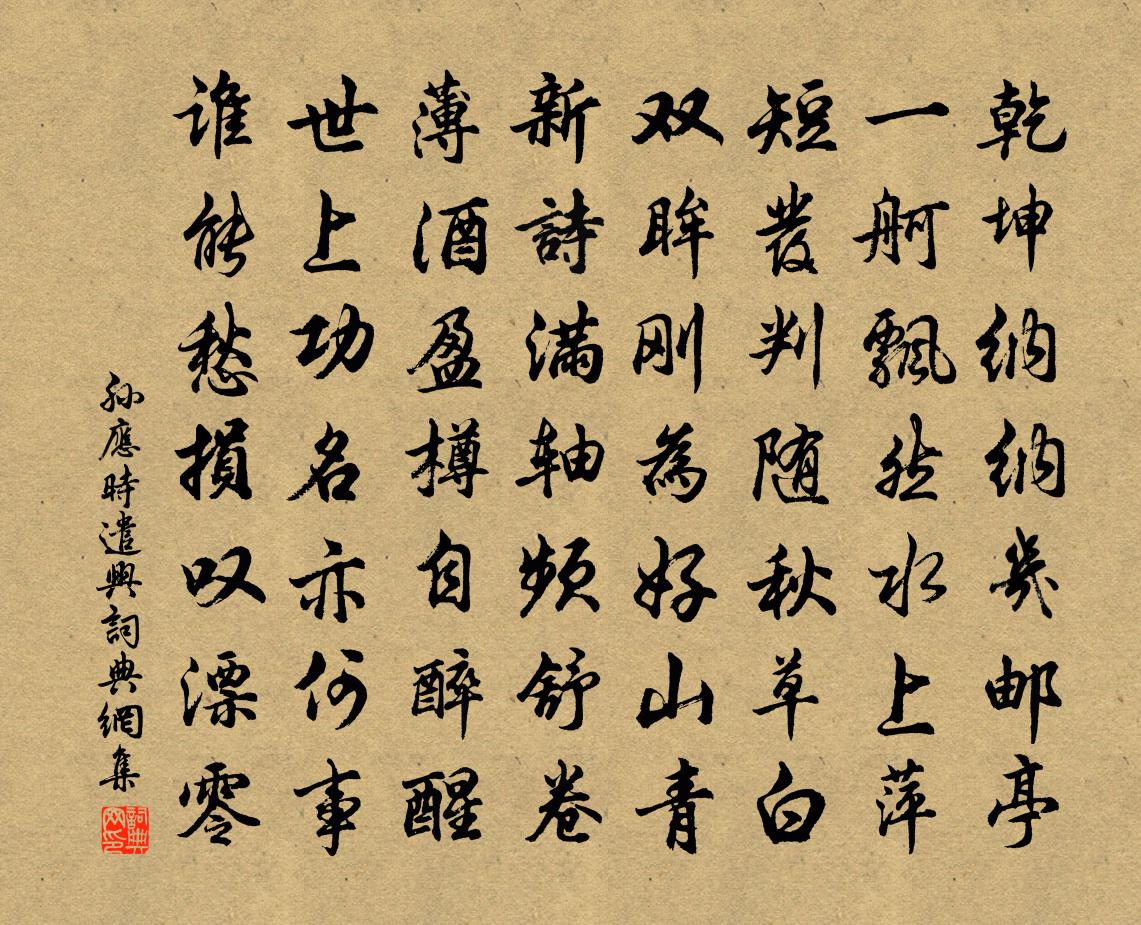 乾坤纳纳几邮亭
一舸飘然水上萍
短发判随秋草白
双眸刚为好山青
新诗满轴频舒卷
薄酒盈樽自醉醒
世上功名亦何事
谁能愁损叹漂零
孙应时遣兴词典网集
词典网印